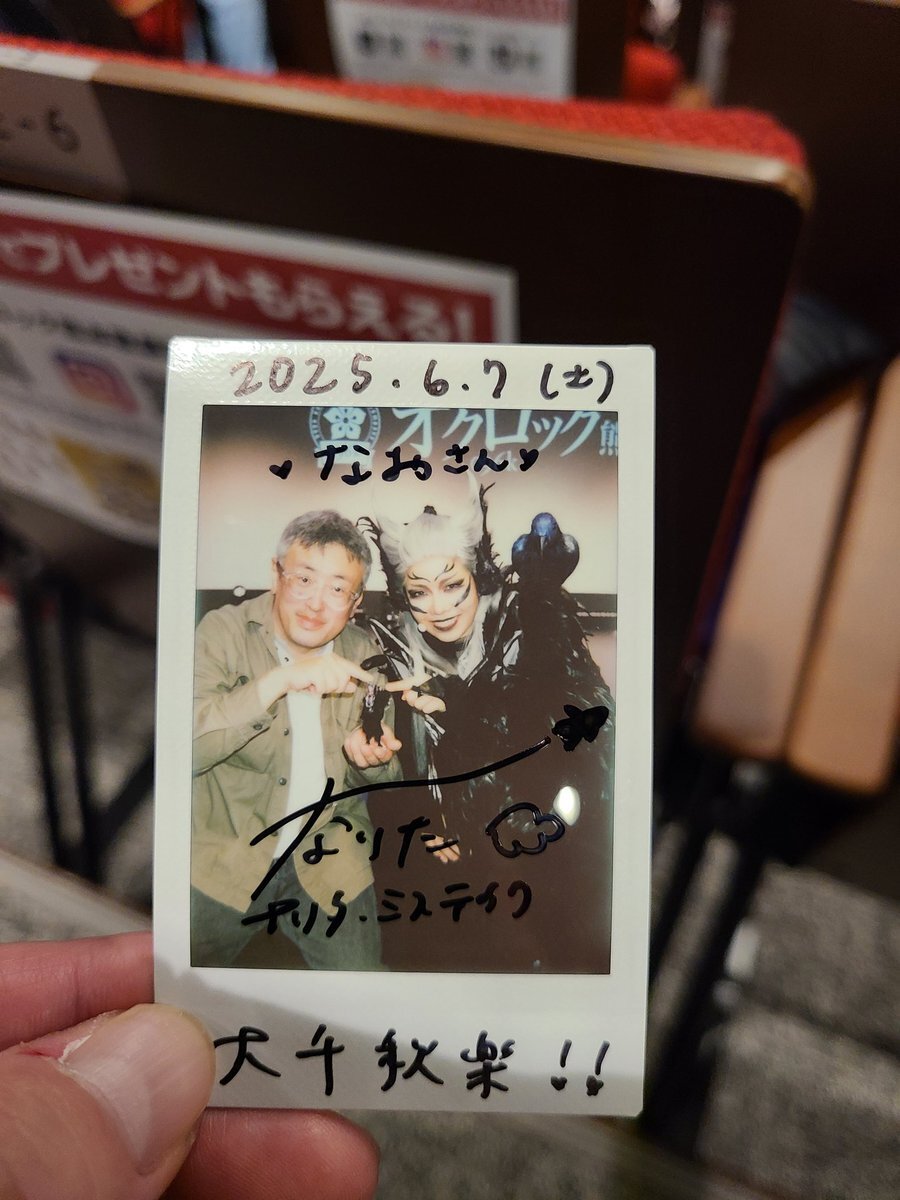 プレゼントもらえる!
2025.6.7(土)
オクロック熊
なおさん
なりた
ナリタ・ミステイク
大千秋楽!!